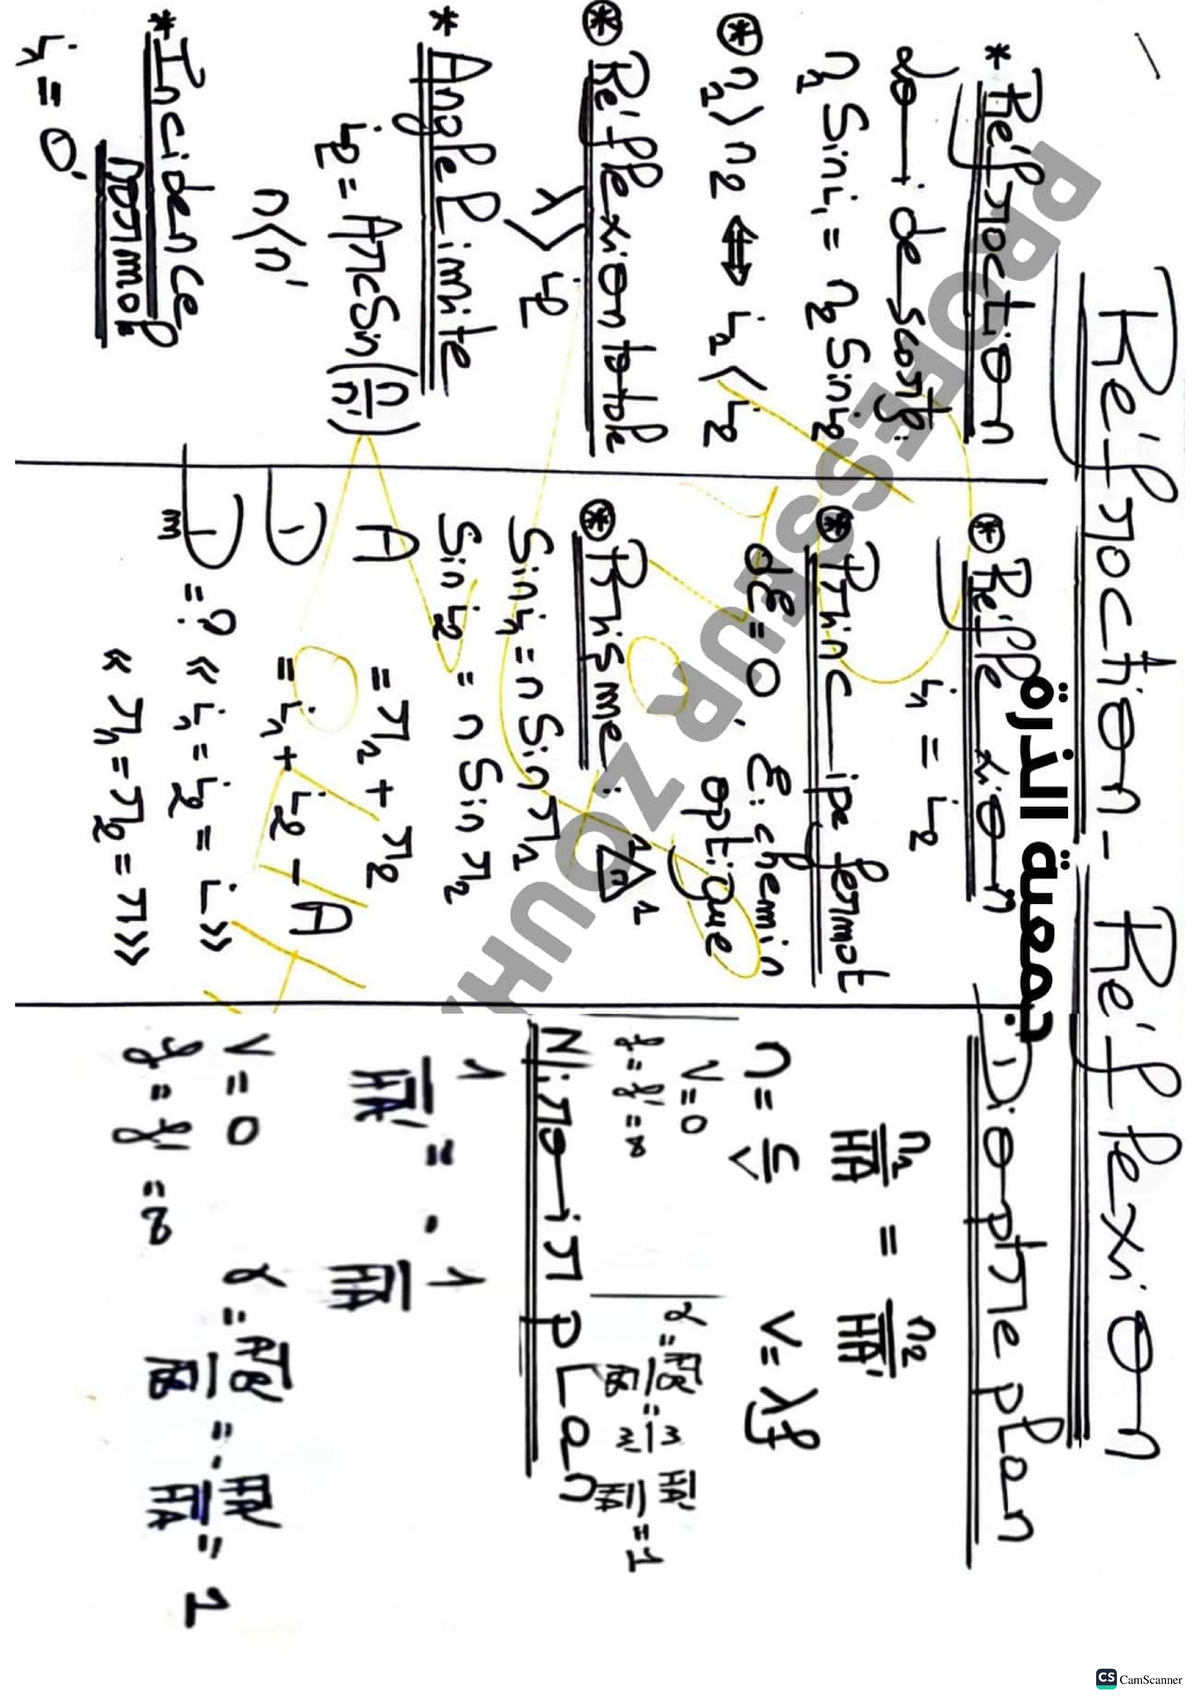 Réfraction - Réflexion
* Réfraction
loi de Descarte:
n₁ Sin i₁ = n₂ Sin i₂
⊛ n₁ > n₂ ⇔ i₁ < i₂
⊛ Réflexion totale
λ > i₂
* Angle limite
i₂ = Arcsin(n/n')
n < n'
* Incidence
normal
i₁ = 0
⊛ Réflexion
i₁ = i₂
⊛ Principe fermat
dℒ = 0, ℒ: chemin
optique
⊛ Prisme: 1 n 1
Sin i₁ = n Sin r₁
Sin i₂ = n Sin r₂
A = r₁ + r₂
D = i₁ + i₂ - A
Dm = ? « i₁ = i₂ = i »
« r₁ = r₂ = r »
• Dioptre plan
n₁/HA = n₂/HA'
n = c/v v = λf
V = 0
f = f' = ∞
γ = A'B'/AB = n/n' HA'/HA = 1
Miroir plan
1/HA' = - 1/HA
V = 0
f = f' = ∞
γ = A'B'/AB = - HA'/HA = 1
PROFESSEUR ZOUH
جمعية الذرة
CS CamScanner